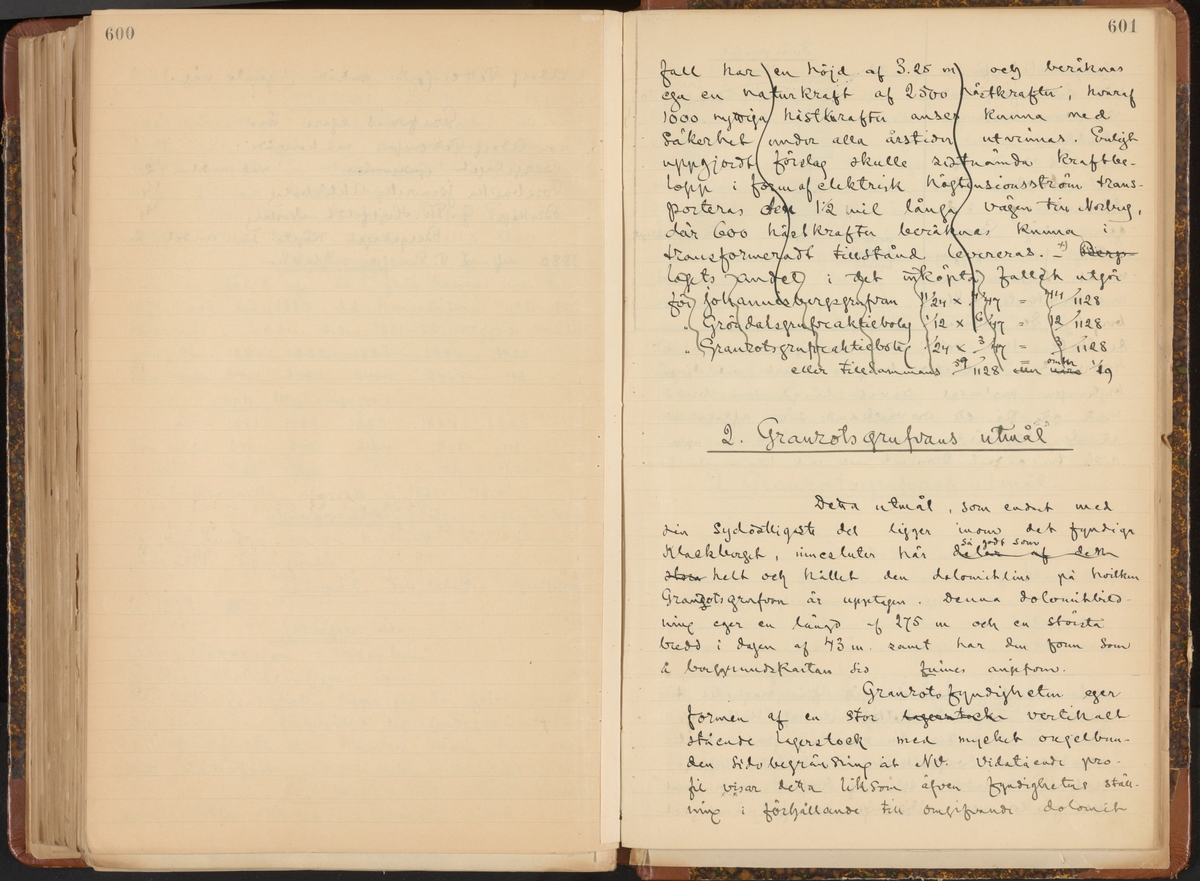 600
601
fall har en höjd af 3.25 m och beräknas
ega en naturkraft af 2500 hästkrafter, hvaraf
1000 nyttiga hästkrafter anses kunna med
säkerhet under alla årstider utvinnas. Enligt
uppgjordt förslag skulle sistnämda kraftbe-
lopp i form af elektrisk högtensionsström trans-
porteras den 1½ mil långa vägen till Norberg,
där 600 hästkrafter beräknas kunna i
transformeradt tillstånd levereras. –
lagets andel i det inköpta fallet utgör
för Johannesbergsgrufvan 11/24 × 4/47 = 44/1128
" Gröndalsgrufveaktiebolag 1/12 × 6/47 = 12/1128
" Granrotsgrufveaktiebolag 1/24 × 3/47 = 3/1128
eller tillsammans 59/1128 eller omkr 1/19
2. Granrotsgrufvans utmål
Detta utmål, som endast med
sin sydöstligaste del ligger inom det fyndiga
Klackberget, innesluter här så godt som delar af den
stora helt och hållet den dolomitlins på hvilken
Granrotsgrufvan är upptagen. Denna dolomitbild-
ning eger en längd af 275 m och en största
bredd i dagen af 43 m. samt har den form som
å berggrundskartan sid finnes angifven.
Granrotsfyndigheten eger
formen af en stor lagerstock vertikalt
stående lagerstock med mycket oregelbun-
den sidobegränsning åt NV. Vidstående pro-
fil visar detta liksom äfven fyndighetens ställ-
ning i förhållande till omgifvande dolomit